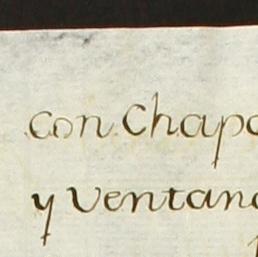 Con Chapa
y Ventana